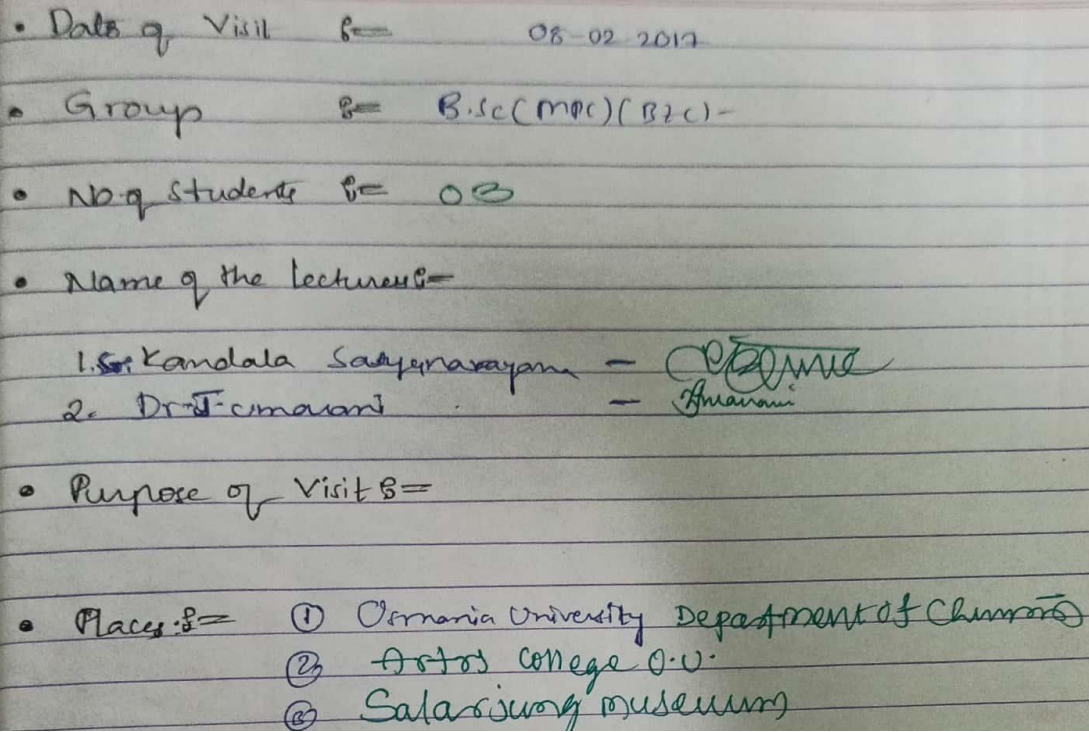 • Date of Visit :- 08-02-2017
• Group :- B.Sc(MPC)(BZC)-
• No. of Students :- 03
• Name of the lecturers:-
1. Sri Kandala Satyanarayana -
2. Dr. J. -
• Purpose of Visit :-
• Places :- ① Osmania University Department of
② Arts College O.U.
③ Salarjung museum